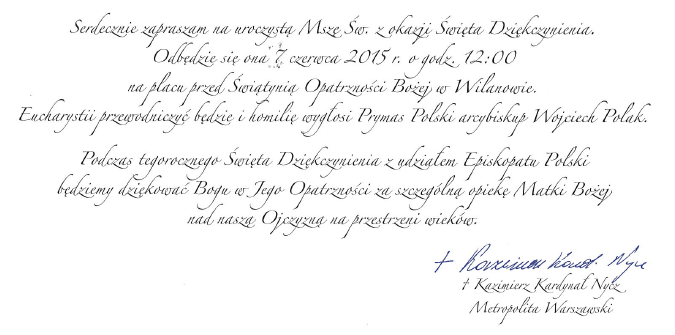 Serdecznie zapraszam na uroczystą Mszę Św. z okazji Święta Dziękczynienia.
Odbędzie się ona 7 czerwca 2015 r. o godz. 12:00
na placu przed Świątynią Opatrzności Bożej w Wilanowie.
Eucharystii przewodniczyć będzie i homilię wygłosi Prymas Polski arcybiskup Wojciech Polak.
Podczas tegorocznego Święta Dziękczynienia z udziałem Episkopatu Polski
będziemy dziękować Bogu w Jego Opatrzności za szczególną opiekę Matki Bożej
nad naszą Ojczyzną na przestrzeni wieków.
+ Kazimierz Kard. Nycz
† Kazimierz Kardynał Nycz
Metropolita Warszawski